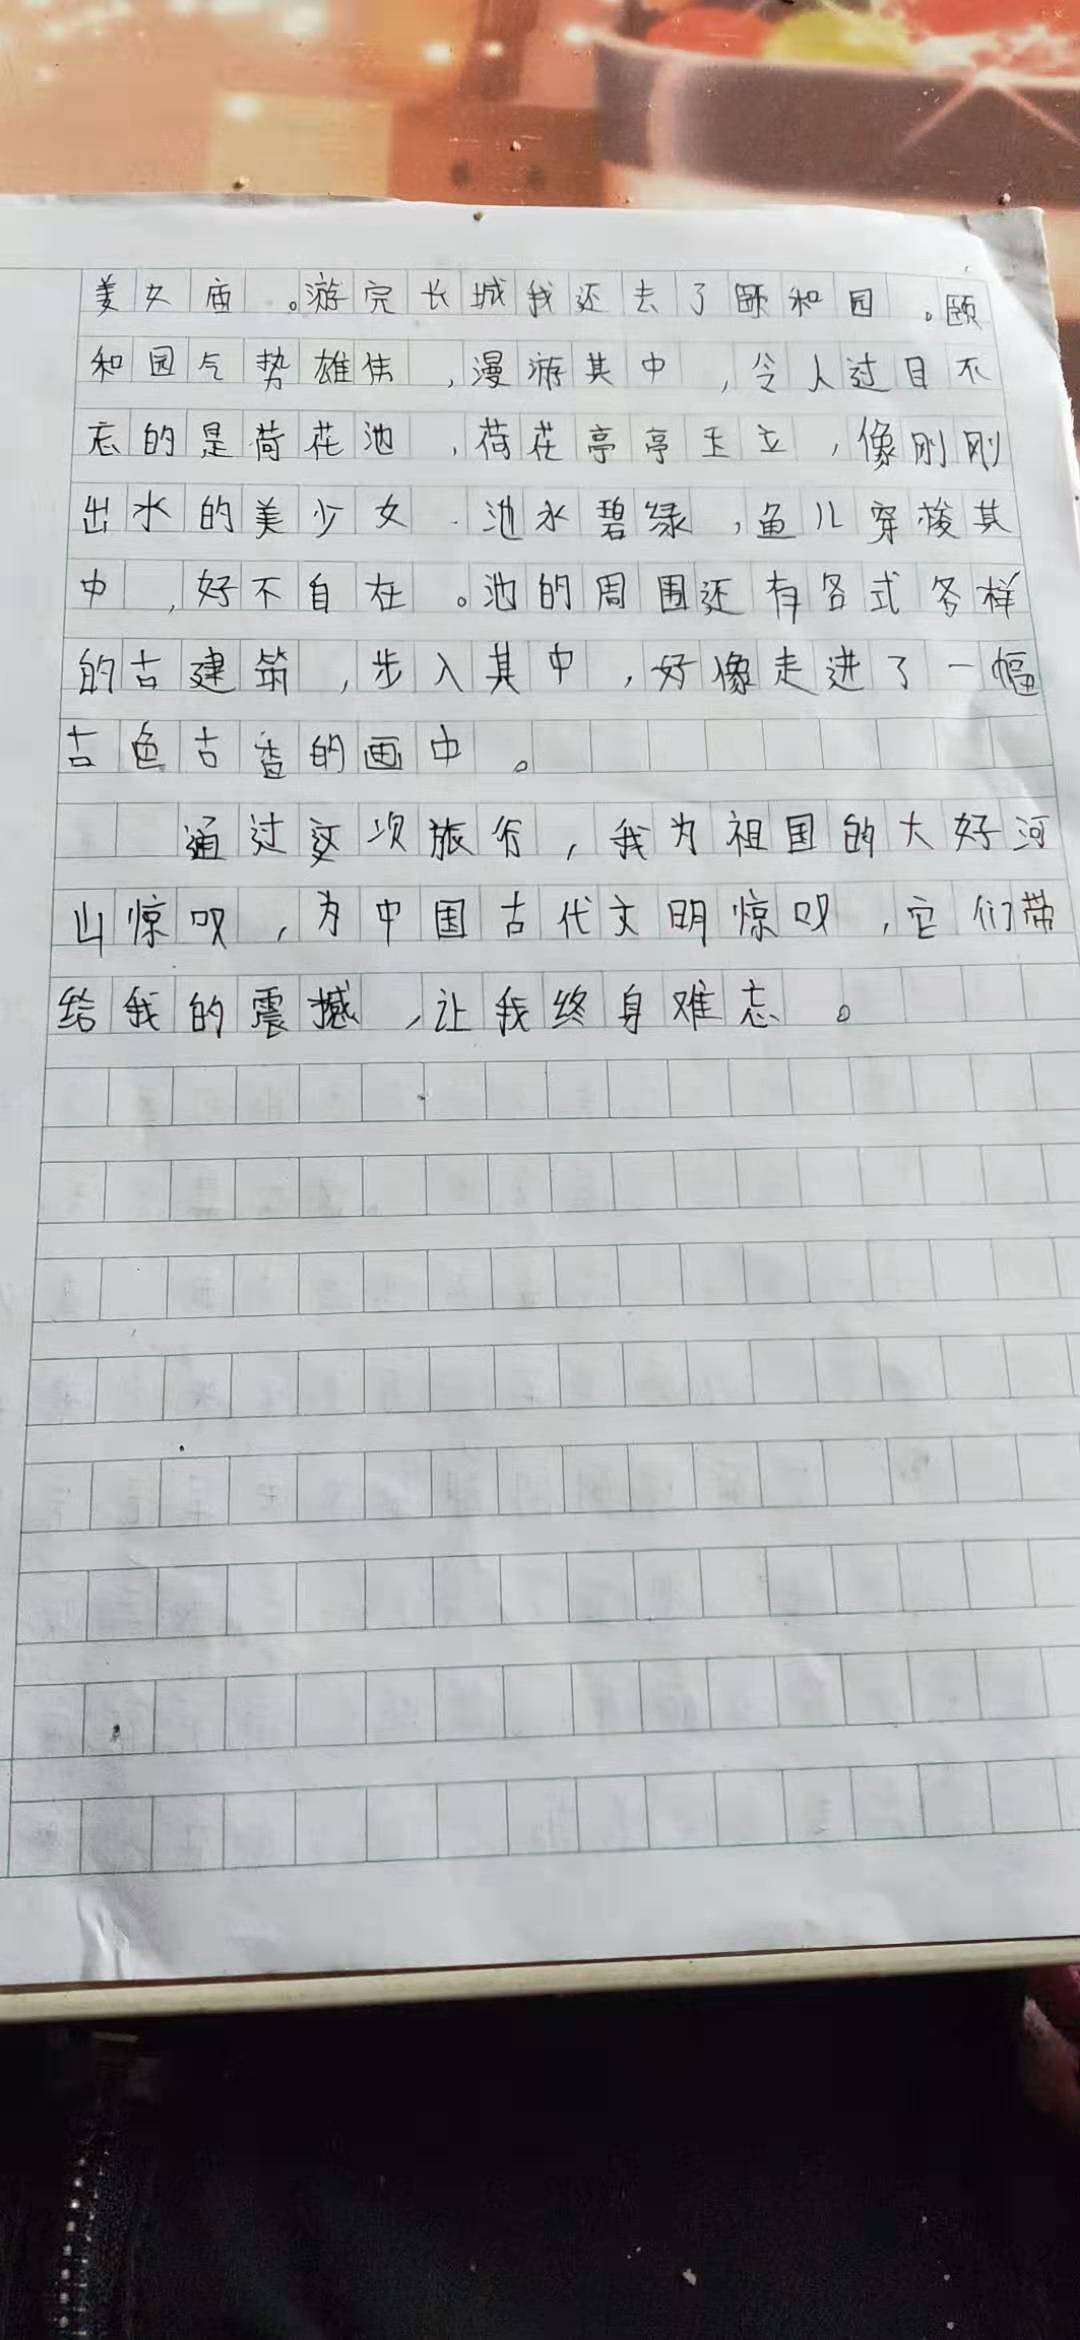 姜女庙。游完长城我还去了颐和园。颐
和园气势雄伟,漫游其中,令人过目不
忘的是荷花池,荷花亭亭玉立,像刚刚
出水的美少女.池水碧绿,鱼儿穿梭其
中,好不自在。池的周围还有各式各样
的古建筑,步入其中,好像走进了一幅
古色古香的画中。
通过这次旅行,我为祖国的大好河
山惊叹,为中国古代文明惊叹,它们带
给我的震撼,让我终身难忘。